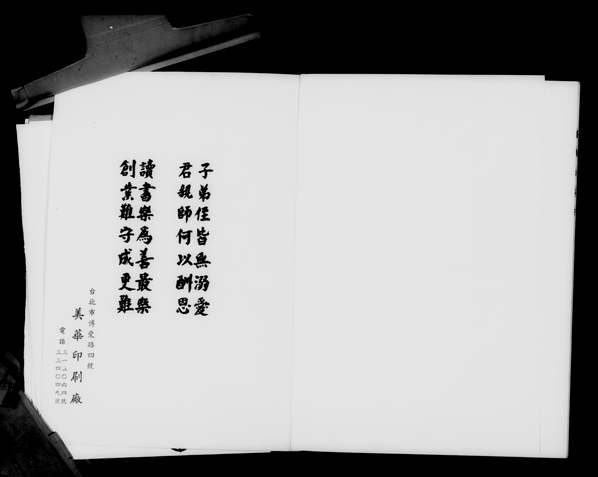 子弟侄皆無溺愛
君親師何以酬恩
讀書樂為善最樂
創業難守成更難
台北市博愛路四號
美華印刷廠
電話